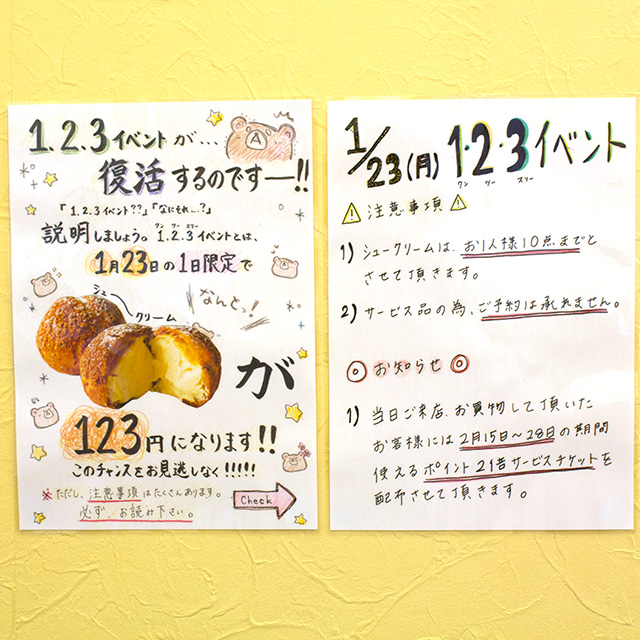 1.2.3イベントが...
復活するのですー!!
「1.2.3イベント??」「なにそれ...?」
説明しましょう。1.2.3イベントとは、
ワン ツー スリー
1月23日の1日限定で
シュークリーム
なんとっ!
が
123円になります!!
このチャンスをお見逃しなく!!!!!
※ただし、注意事項はたくさんあります。
必ず、お読み下さい。
Check
1/23(月) 1・2・3イベント
ワン ツー スリー
注意事項
1) シュークリームは、お1人様10点までと
させて頂きます。
2) サービス品の為、ご予約は承れません。
◎お知らせ◎
1) 当日ご来店、お買物して頂いた
お客様には2月15日〜28日の期間
使えるポイント2倍サービスチケットを
配布させて頂きます。